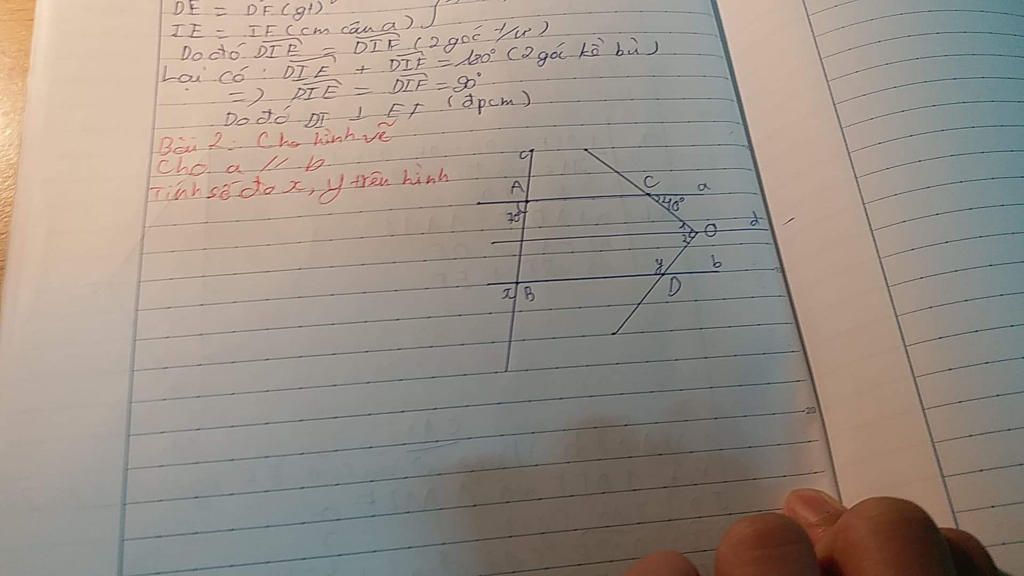 DE = DF (gt)
IE = IF (cm câu a)
Do đó DIE = DIF (2 góc t/ư)
Lại có: DIE + DIF = 180° (2 góc kề bù)
=> DIE = DIF = 90°
Do đó DI ⊥ EF (đpcm)
Bài 2: Cho hình vẽ
Cho a // b
Tính số đo x, y trên hình
c
A C a
40°
O d
y b
x B D
20